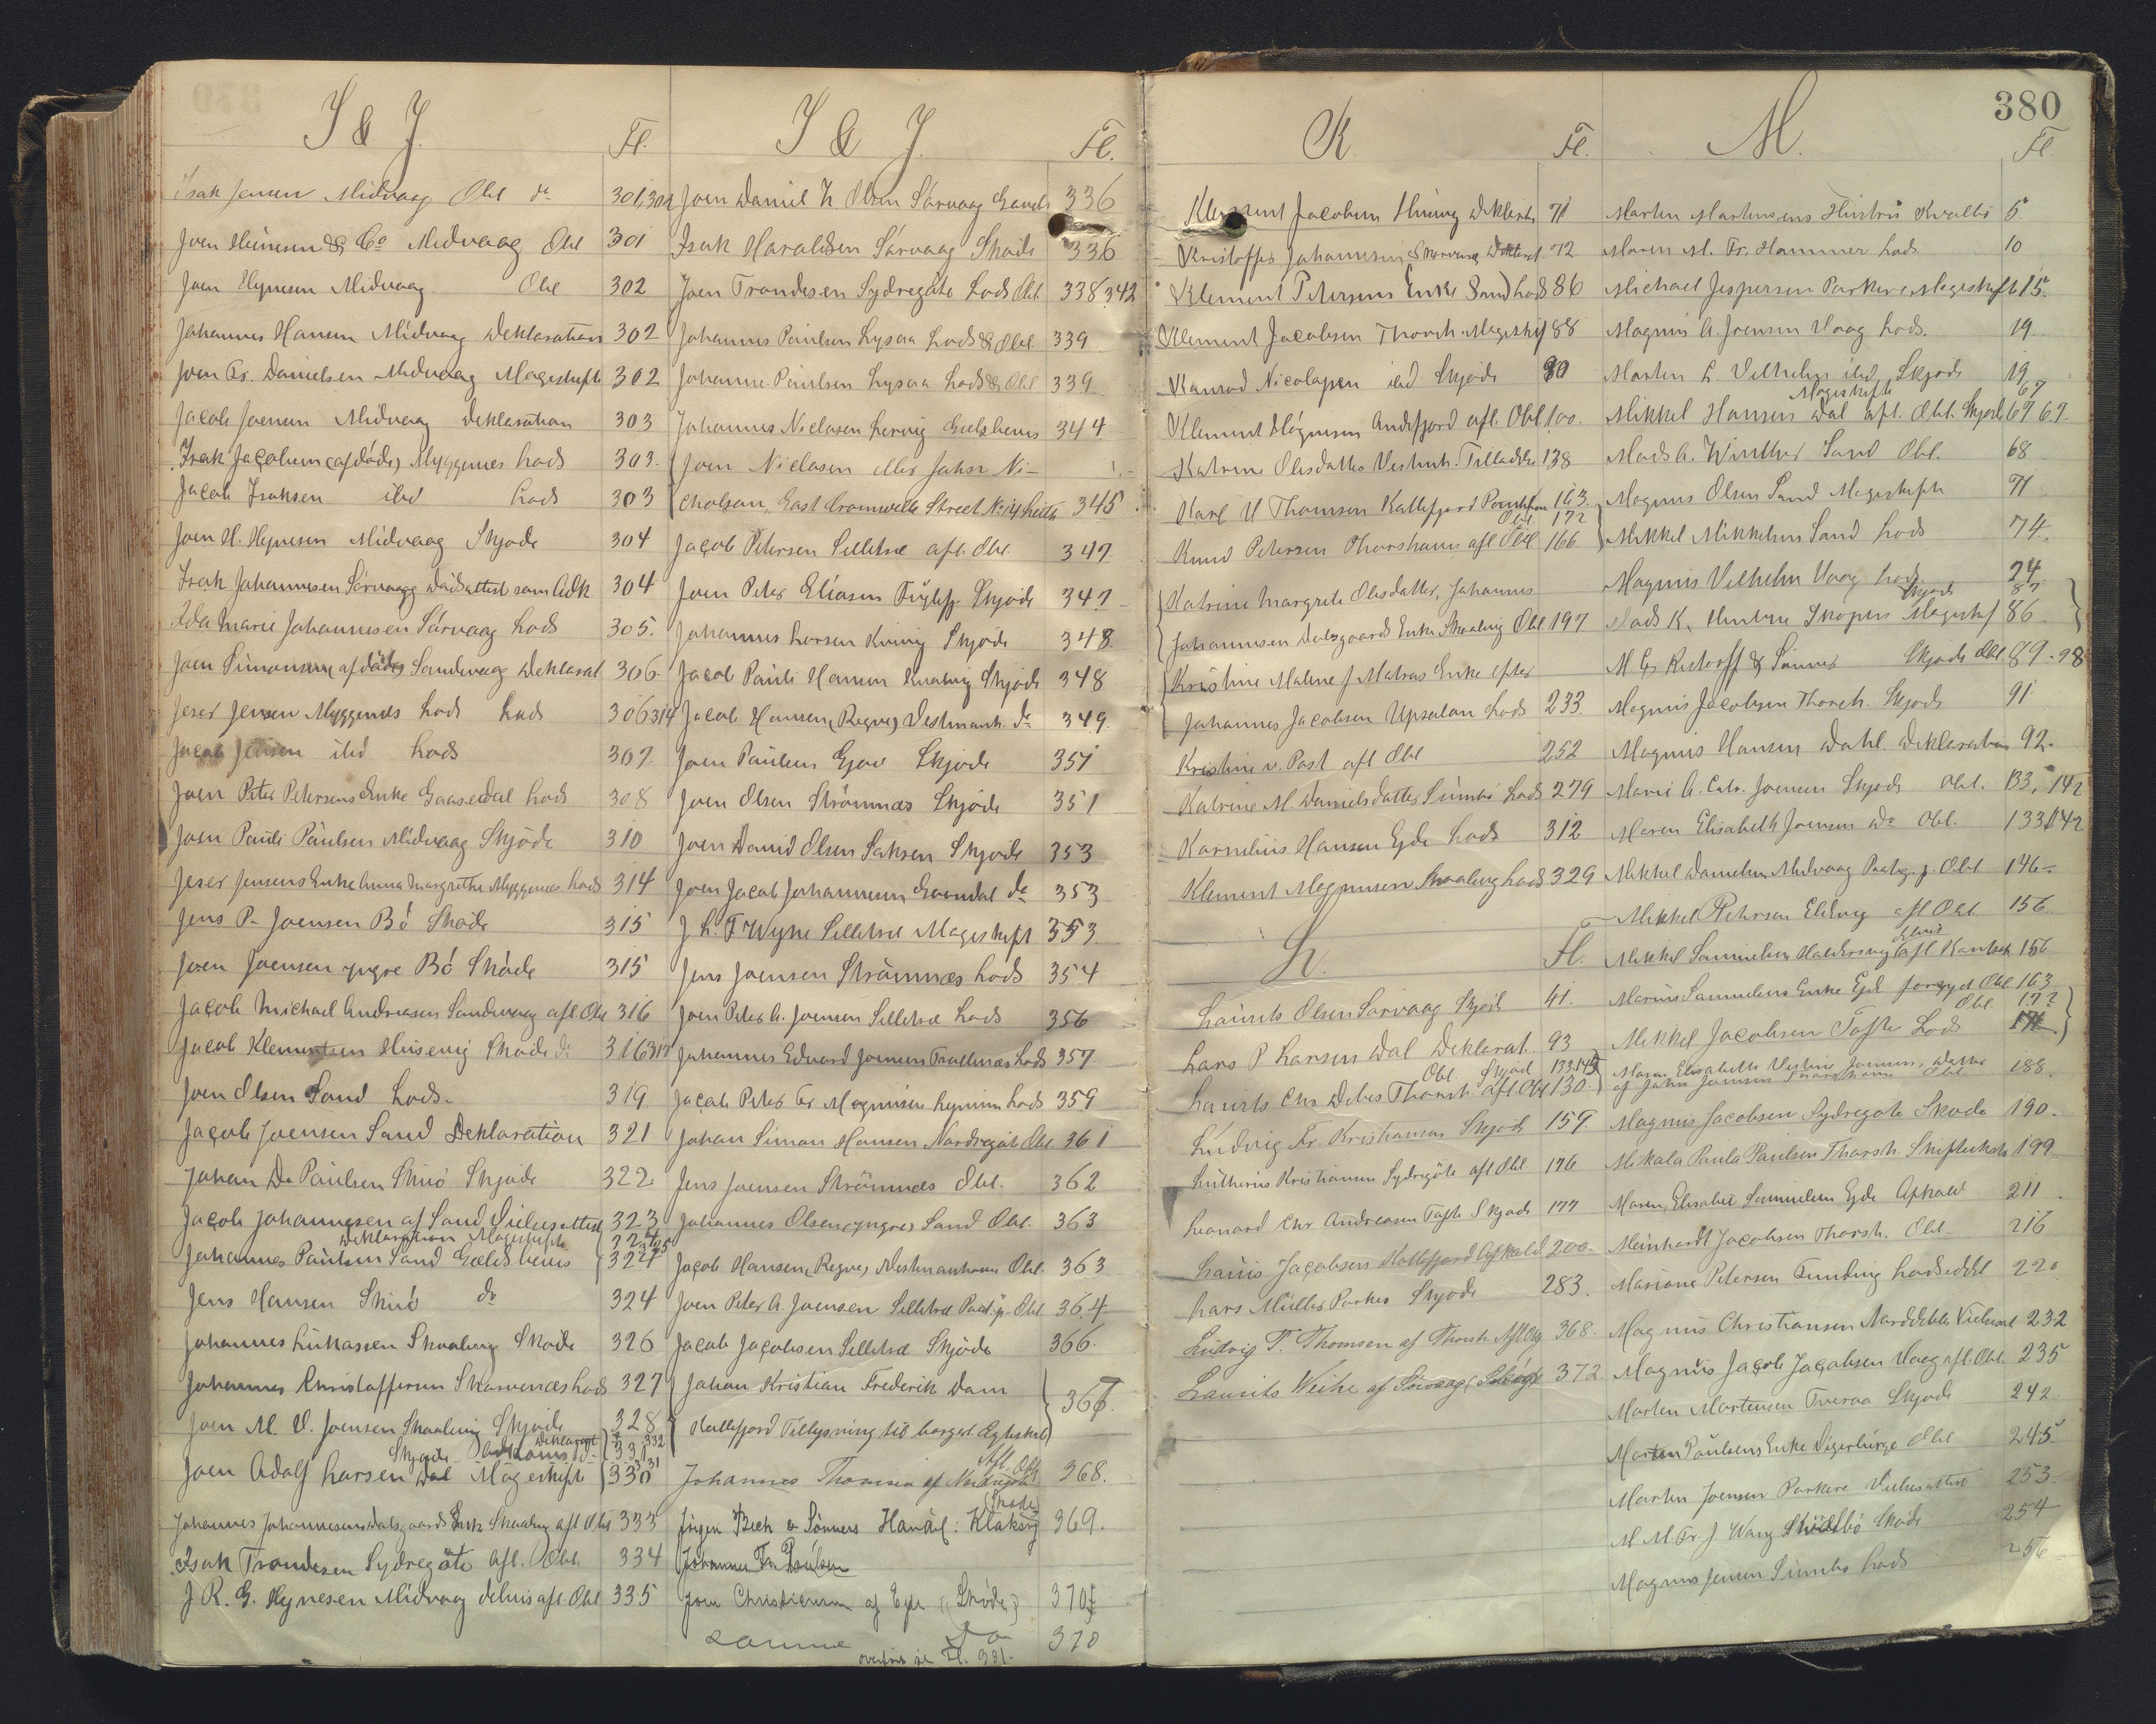 I & J. Fl.
Isak Jensen Midvaag Obl do 301,302
Joen Heinesen & Co Midvaag Obl 301
Joen Hejnesen Midvaag Obl 302
Johannes Hansen Midvaag Deklaration 302
Joen Fr. Danielsen Midvaag Mageskifte 302
Jacob Joensen Midvaag Deklaration 303
Isak Jacobsen (afdöde) Myggenes hads 303.
Jacob Isaksen ibd hads 303
Joen H. Hejnesen Midvaag Skjøde 304
Isak Johannesen Sørvaag som Adk 304
Ida Marie Johannesen Sørvaag hads 305.
Joen Simonsen (afdödes) Sandevaag Deklarat 306.
Jeser Jensen Myggenes hads hads 306 314
Jacob Jensen ibd hads 307
Joen Peter Petersens Enke Gaasedal hads 308
Joen Pauli Paulsen Midvaag Skjøde 310
Jeser Jensens Enke Anna Margrethe Myggenes hads 314
Jens P. Joensen Bø Skøde 315
Joen Joensen yngre Bø Skøde 315
Jacob Michael Andreasen Sandevaag afl. Obl 316
Jacob Klementsen Husevig Skøde do 316 317
Joen Olsen Sand hads. 319
Jacob Joensen Sand Deklaration 321
Johan Da Paulsen Skuö Skjøde 322
Jacob Johannesen af Sand Vielsesattest 323
Deklaration Mageskifte
Johannes Paulsen Sand Gældsbevis 324
Jens Hansen Skuö do 324
Johannes Lukassen Skaaling Skøde 326
Johannes Kristoffersen Skarvenæs hads 327
Joen M. V. Joensen Skaaling Skjøde 328
Skjøde
Joen Adolf Larsen Dal Mageskifte 330
Johannes Johannesens Dalsgaards Enke Skaaling afl Obl 333
Isak Trondesen Sydregøte afl. Obl. 334
J R. G. Hejnesen Midvaag afl Obl 335
I & J. Fl.
Joen Daniel H. Olsen Sørvaag 336
Isak Haraldsen Sørvaag Skøde 336
Joen Trondesen Sydregøte hads Obl 338 342
Johannes Paulsen Lysaa hads & Obl 339
Johanne Paulsen Lysaa hads & Obl 339
Johannes Niclasen Lervig Gældsbevis 344
Joen Niclasen eller Johs Ni-
cholson, East Cromwell Street No 14 Leith 345
Jacob Petersen Selletræ afl. Obl. 347
Joen Peter Eliasen Fuglefj. Skjøde 347
Johannes Larsen Kunig Skjøde 348.
Jacob Pauli Hansen Kvalvig Skjøde 348
Jacob Hansen (Regve) Vestmanh. do 349.
Joen Paulsen Gjov Skjøde 351
Joen Olsen Strömnæs Skjøde 351
Joen David Olsen Saksen Skjøde 353
Joen Jacob Johannesen do 353
J. L. F Wyse Selletræ Mageskift 353
Jens Joensen Strömnæs hads 354
Joen Peter A. Joensen Selletræ hads 356
Johannes Edvard Joensens Trøllenæs hads 357
Jacob Peter Fr Magnusen Lejnum hads 359
Johan Simon Hansen Nordregöte Obl. 361
Jens Joensen Strömnæs Obl. 362
Johannes Olsen (yngre) Sand Obl. 363
Jacob Hansen (Regve) Vestmanhavn Obl. 363
Joen Peter A. Joensen Selletræ Obl. 364
Jacob Jacobsen Selletræ Skjøde 366.
Johan Kristian Frederik Dam
Kollefjord Tillysning til borgerl. Ægteskab 367.
Afl. Obl.
Johannes Thomsen af Nordragöta 368.
Skøde
Jörgen Bech & Sönners Handel: Klaksvig 369.
Joen Christiansen af Ejde (Skøde) 370
Samme do 370
overført se Fl. 381.
K Fl.
Klement Jacobsen Husevig Deklarat 71
Kristoffer Johannesen Skarvenæs Deklarat. 72
Klement Petersens Enke Sand hads 86
Klement Jacobsen Thorsh. Mageskift 88
Konrad Nicolajsen ibd Skjøde 90
Klement Høgnesen Andefjord afl. Obl 100.
Katrine Olesdatter Vestmh. Tilladelse 138
Karl U Thomsen Kollefjord 163.
Obl. 172
Knud Petersen Thorshavn afl Obl 166
Katrine Margrete Olesdatter, Johannes
Johannesen Dalsgaards Enke Skaaling Obl 197
Kristine Malene f Matras Enke efter
Johannes Jacobsen Upsalon hads 233
Kristine v. Post afl Obl 252
Katrine M. Danielsdatter Sumbö hads 279
Kornelius Hansen Ejde hads 312
Klement Magnusen Skaaling hads 329
L. Fl.
Laurits Olsen Sørvaag Skjøde 41.
Lars P Larsen Dal Deklarat. 93
Obl. Skjød 133.145
Laurits Chr Debes Thorsh. afl. Obl 130.
Ludvig Fr. Kristiansen Skjøde 159.
Lutherus Kristiansen Sydregöte afl Obl 176
Leonard Chr Andreasen Tofte Skjøde 177
Lauis Jacobsen Kollefjord Afkald 200.
Lars Müller Porkere Skjøde 283.
Ludvig T. Thomsen af Thorsh. Afl. Obl. 368.
Laurits Weihe af Sörvaag 372
380
M. Fl.
Morten Martensens Hustru Kvalbö 5.
Maren M. Fr. Hammer hads. 10
Michael Jespersen Porkere Mageskift 15.
Magnus A. Joensen Vaag hads. 19
Morten L. Vilhelm ibd Skjøde 19
Mageskifte 67
Mikkel Hansens Dal afl. Obl. Skjøde 67 69
Mads A. Winther Sand Obl. 68
Magnus Olsen Sand Mageskifte 71
Mikkel Mikkelsen Sand hads 74.
Magnus Vilhelm Vaag hads 24
Skjøde 87
Mads K. Skopen Mageskift 86
M Es Restorff & Sönner Skjøde Obl 89.98
Magnus Jacobsen Thorsh. Skjøde 91
Magnus Hansen Dahl. Deklaration 92.
Marie A. Catr. Joensen Skjøde Obl. 133, 142
Maren Elisabeth Joensen Do Obl. 133 142
Mikkel Danielsen Midvaag Obl 146-
Mikkel Petersen Eldevig afl Obl 156
Mikkel Samuelsen Haldersvig afl 156
Marius Samuelsens Enke Ejde Obl 163
Obl. 172
Mikkel Jacobsen Tofte hads
Maren Elisabeth Joensen, Datter
af John Joensen Thorshavn Obl 188.
Magnus Jacobsen Sydregöte Skøde 190.
Mikala Paula Poulsen Thorsh. 199
Maren Elisabet Samuelsen Ejde Afkald 211
Meinhardt Jacobsen Thorsh. Obl. 216
Mariane Petersen Funding hadseddel 220
Magnus Christiansen Norddeble 232
Magnus Jacob Jacobsen Vaag afl. Obl. 235
Morten Mortensen Tveraa Skjøde 242
Morten Poulsens Enke Vigerbirge Obl 245
Morten Joensen Porkere Vielsesattest 253
M M Fr J. Wang Skøde 254
Magnus Jensen Sumbö hads 256